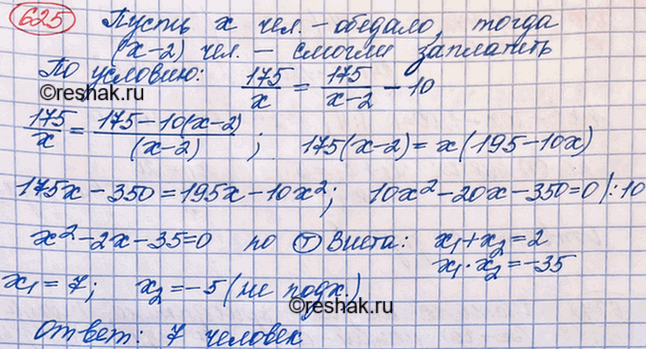 625 Пусть x чел. - обедало, тогда
(x-2) чел. - смогли заплатить
По условию: 175/x = 175/(x-2) - 10
©reshak.ru
175/x = (175-10(x-2))/(x-2) ; 175(x-2) = x(195-10x)
175x - 350 = 195x - 10x²; 10x² - 20x - 350 = 0 |:10
x² - 2x - 35 = 0 по Ⓣ Виета: x₁+x₂ = 2
x₁·x₂ = -35
x₁ = 7; x₂ = -5 (не подх.)
©reshak.ru
Ответ: 7 человек